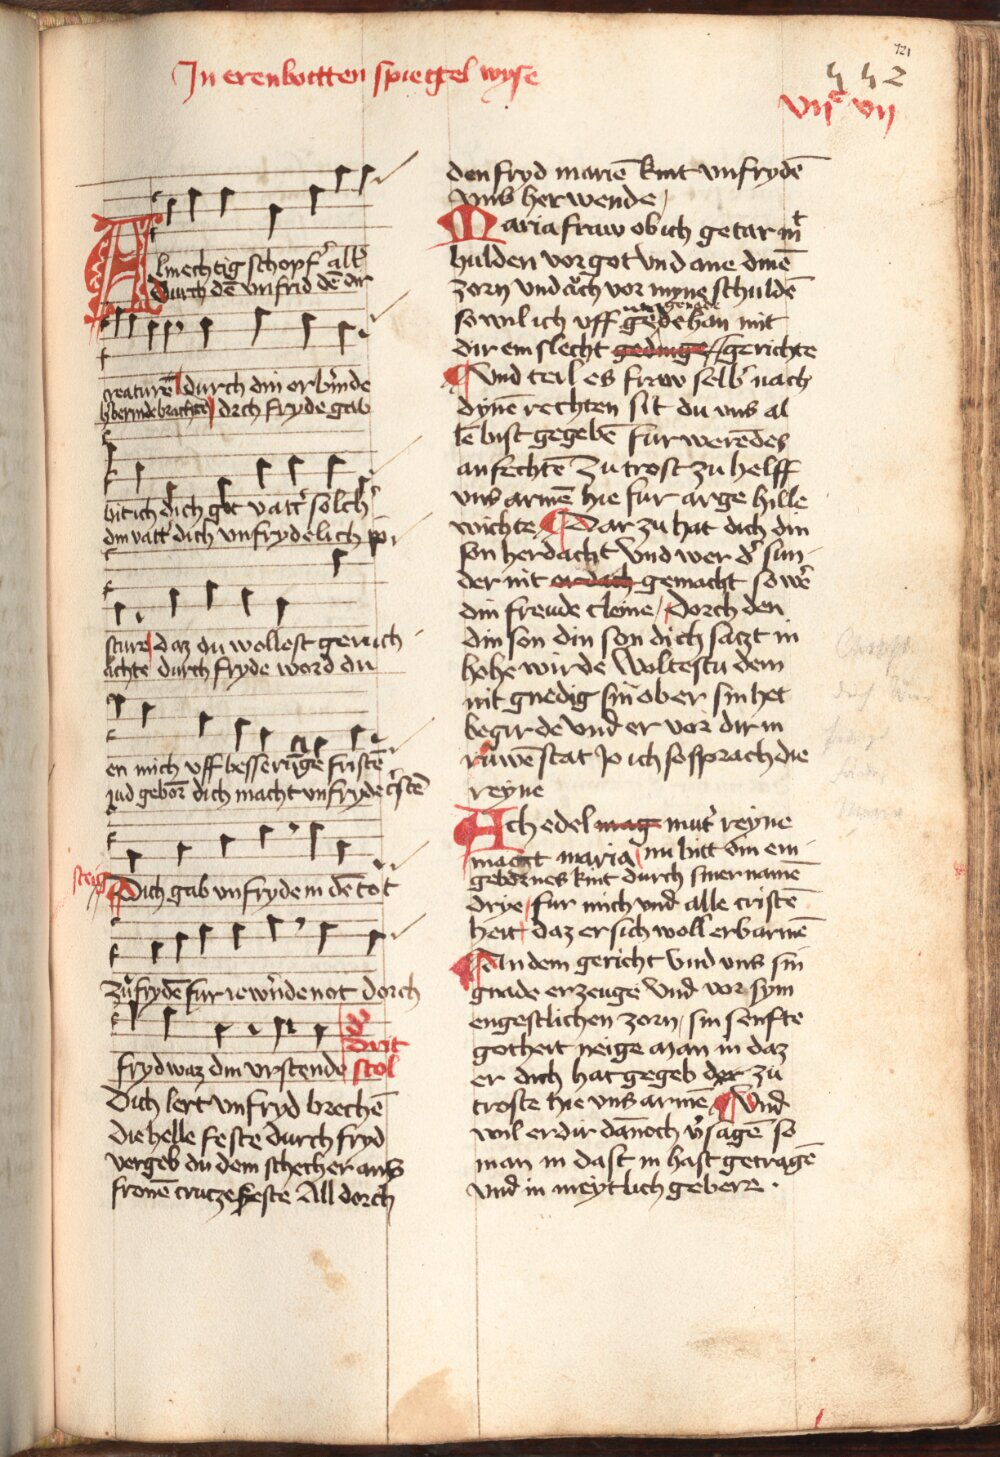 In erenbottten spiegel wyse
721
442
vijc vij
Almechtig schopfer aller
Durch dē vnfrid dē dir
creaturē durch din erbermde
berindebrachte dorch fryde gab
bit ich dich got vatter solch
din vatter dich vnfrydelich pi
sture daz du wollest geruch
achte durch fryde word du
en mich vff besserūge fristē
jud geborē dich macht vnfryde
steig
Dich gab vnfryde in dē tot
zu frydē fur iewernde not dorch
fryd waz din vrstende
Der drit stol
Dich lert vnfryd brechē
die helle feste durch fryd
vergeb du dem schecher ans
fronē crucze feste All dorch
den fryd mariē kint vnfrydē
vns her wende
Maria fraw ob ich getar mit
hulden vor got vnd ane dinē
zorn vnd auch vor myne schuldē
so wil ich vff gnade han mit
dir ein slecht gedinge gerichte
Vnd teil es fraw selber nach
dynē rechten sit du vns al
lē bist gegebē fur werēdes
anfechtē zu trost zu helff
vns armē hie fur arge hille
wichte Dar zu hat dich din
son herdacht Vnd wer der sun
der nit erdach gemacht so wer
din freude cleine Dorch den
din son din son dich saczt in
hohe wirde Woltestu dem
nit gnedig sin ober sin het
begirde vnd er vor dir in
ruwē stat Jo ich so sprach die
reyne
Ach edel mag muter reyne
magt maria nu bitt din ein
gebornes kint durch siner namē
drye fur mich vnd alle cristē
heit daz er sich woll erbarmē
An dem gericht vnd vns sin
gnade erzeuge Vnd vor sym
engestlichen zorn sin senfte
gotheit neige Man in daz
er dich hat gegeb der zu
troste hie vns armē Vnd
wil er dir dānoch versagē so
man in dast in hast getragē
vnd in meytlich gebere .